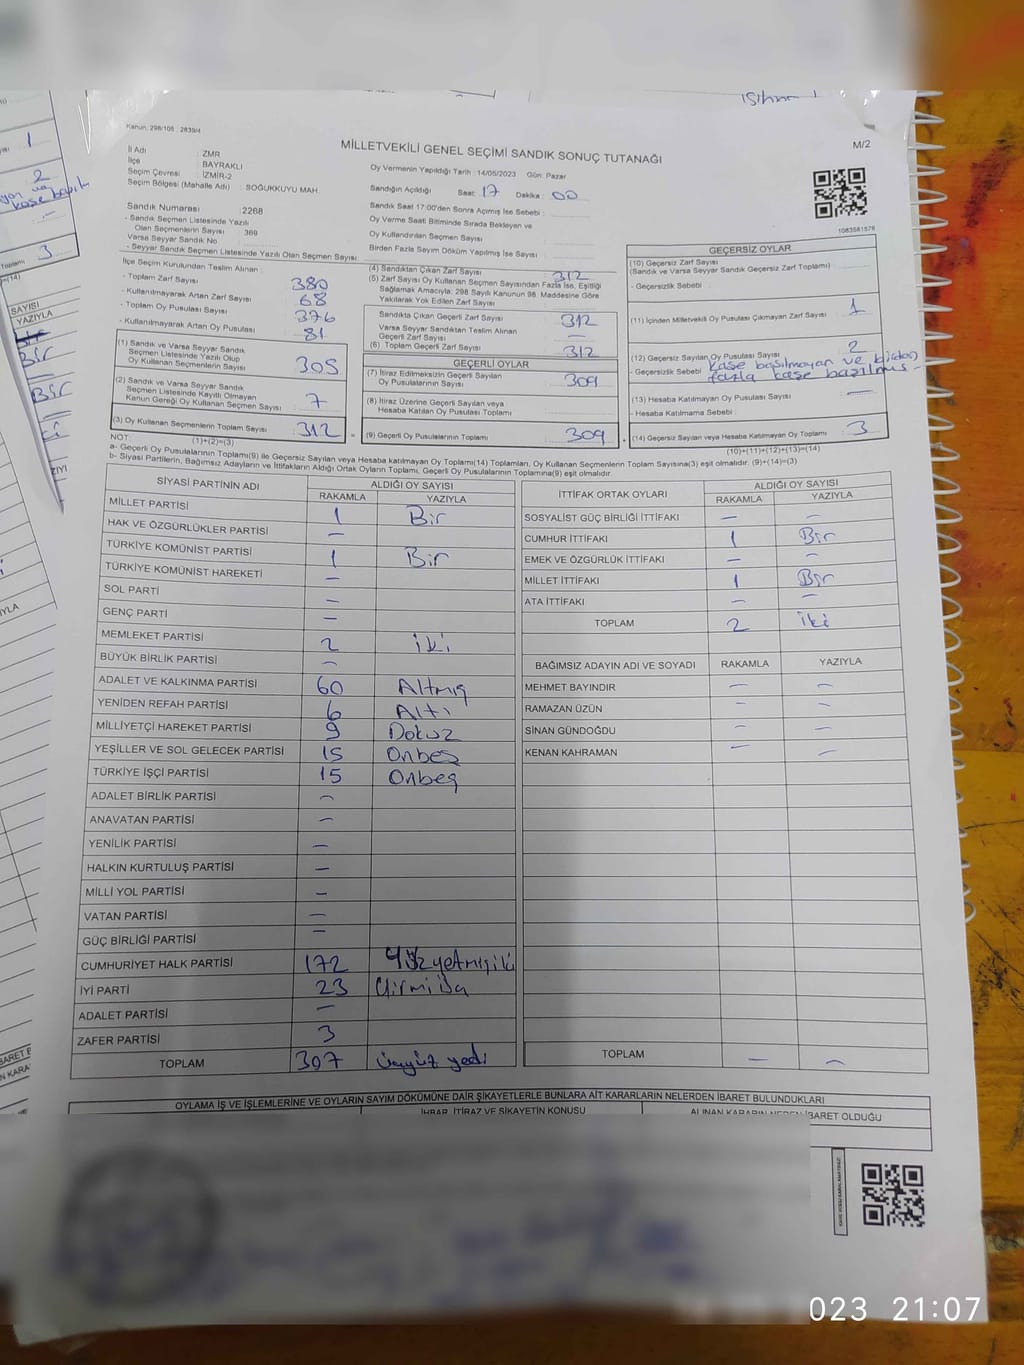 işhna
Kanun: 298/108 : 2839/4
MİLLETVEKİLİ GENEL SEÇİMİ SANDIK SONUÇ TUTANAĞI
M/2
İl Adı : ZMR
İlçe : BAYRAKLI
Seçim Çevresi : İZMİR-2
Seçim Bölgesi (Mahalle Adı) : SOĞUKKUYU MAH.
Oy Vermenin Yapıldığı Tarih : 14/05/2023 Gün: Pazar
Sandığın Açıldığı Saat: 17 Dakika : 00
Sandık Numarası : 2268
- Sandık Seçmen Listesinde Yazılı
Olan Seçmenlerin Sayısı : 369
Varsa Seyyar Sandık No
- Seyyar Sandık Seçmen Listesinde Yazılı Olan Seçmen Sayısı:
Sandık Saat 17:00'den Sonra Açımış İse Sebebi :
Oy Verme Saati Bitiminde Sırada Bekleyen ve
Oy Kullandırılan Seçmen Sayısı
Birden Fazla Sayım Döküm Yapılmış İse Sayısı
1083581576
İlçe Seçim Kurulundan Teslim Alınan :
- Toplam Zarf Sayısı 380
- Kullanılmayarak Artan Zarf Sayısı : 68
- Toplam Oy Pusulası Sayısı : 376
- Kullanılmayarak Artan Oy Pusulası : 81
(1) Sandık ve Varsa Seyyar Sandık
Seçmen Listesinde Yazılı Olup
Oy Kullanan Seçmenlerin Sayısı 305
(2) Sandık ve Varsa Seyyar Sandık
Seçmen Listesinde Kayıtlı Olmayan
Kanun Gereği Oy Kullanan Seçmen Sayısı : 7
(3) Oy Kullanan Seçmenlerin Toplam Sayısı : 312
(1)+(2)=(3)
(4) Sandıktan Çıkan Zarf Sayısı : 312
(5) Zarf Sayısı Oy Kullanan Seçmen Sayısından Fazla İse, Eşitliği
Sağlamak Amacıyla; 298 Sayılı Kanunun 98. Maddesine Göre
Yakılarak Yok Edilen Zarf Sayısı
Sandıkta Çıkan Geçerli Zarf Sayısı 312
Varsa Seyyar Sandıktan Teslim Alınan
Geçerli Zarf Sayısı —
(6) Toplam Geçerli Zarf Sayısı : 312
GEÇERLİ OYLAR
(7) İtiraz Edilmeksizin Geçerli Sayılan
Oy Pusulalarının Sayısı : 309
(8) İtiraz Üzerine Geçerli Sayılan veya
Hesaba Katılan Oy Pusulası Toplamı :
(9) Geçerli Oy Pusulalarının Toplamı : 309
GEÇERSİZ OYLAR
(10) Geçersiz Zarf Sayısı
(Sandık ve Varsa Seyyar Sandık Geçersiz Zarf Toplamı) :
- Geçersizlik Sebebi :
(11) İçinden Milletvekili Oy Pusulası Çıkmayan Zarf Sayısı : 1
(12) Geçersiz Sayılan Oy Pusulası Sayısı : 2
- Geçersizlik Sebebi kaşe basılmayan ve birden
fazla kaşe basılmış
(13) Hesaba Katılmayan Oy Pusulası Sayısı : —
- Hesaba Katılmama Sebebi :
(14) Geçersiz Sayılan veya Hesaba Katılmayan Oy Toplamı : 3
(10)+(11)+(12)+(13)=(14)
NOT:
a- Geçerli Oy Pusulalarının Toplamı(9) ile Geçersiz Sayılan veya Hesaba Katılmayan Oy Toplamı(14) Toplamları, Oy Kullanan Seçmenlerin Toplam Sayısına(3) eşit olmalıdır. (9)+(14)=(3)
b- Siyasi Partilerin, Bağımsız Adayların ve İttifakların Aldığı Ortak Oyların Toplamı, Geçerli Oy Pusulalarının Toplamına(9) eşit olmalıdır.
SİYASİ PARTİNİN ADI ALDIĞI OY SAYISI
RAKAMLA YAZIYLA
MİLLET PARTİSİ 1 Bir
HAK VE ÖZGÜRLÜKLER PARTİSİ —
TÜRKİYE KOMÜNİST PARTİSİ 1 Bir
TÜRKİYE KOMÜNİST HAREKETİ —
SOL PARTİ —
GENÇ PARTİ —
MEMLEKET PARTİSİ 2 iki
BÜYÜK BİRLİK PARTİSİ —
ADALET VE KALKINMA PARTİSİ 60 Altmış
YENİDEN REFAH PARTİSİ 6 Altı
MİLLİYETÇİ HAREKET PARTİSİ 9 Dokuz
YEŞİLLER VE SOL GELECEK PARTİSİ 15 Onbeş
TÜRKİYE İŞÇİ PARTİSİ 15 Onbeş
ADALET BİRLİK PARTİSİ —
ANAVATAN PARTİSİ —
YENİLİK PARTİSİ —
HALKIN KURTULUŞ PARTİSİ —
MİLLİ YOL PARTİSİ —
VATAN PARTİSİ —
GÜÇ BİRLİĞİ PARTİSİ —
CUMHURİYET HALK PARTİSİ 172 Yüzyetmişiki
İYİ PARTİ 23 Yirmi üç
ADALET PARTİSİ —
ZAFER PARTİSİ 3
TOPLAM 307 üçyüz yedi
İTTİFAK ORTAK OYLARI ALDIĞI OY SAYISI
RAKAMLA YAZIYLA
SOSYALİST GÜÇ BİRLİĞİ İTTİFAKI — —
CUMHUR İTTİFAKI 1 Bir
EMEK VE ÖZGÜRLÜK İTTİFAKI — —
MİLLET İTTİFAKI 1 Bir
ATA İTTİFAKI — —
TOPLAM 2 iki
BAĞIMSIZ ADAYIN ADI VE SOYADI RAKAMLA YAZIYLA
MEHMET BAYINDIR — —
RAMAZAN ÜZÜN — —
SİNAN GÜNDOĞDU — —
KENAN KAHRAMAN — —
TOPLAM — —
OYLAMA İŞ VE İŞLEMLERİNE VE OYLARIN SAYIM DÖKÜMÜNE DAİR ŞİKAYETLERLE BUNLARA AİT KARARLARIN NELERDEN İBARET BULUNDUKLARI
İHBAR, İTİRAZ VE ŞİKAYETİN KONUSU ALINAN KARARIN NEDEN İBARET OLDUĞU
023 21:07